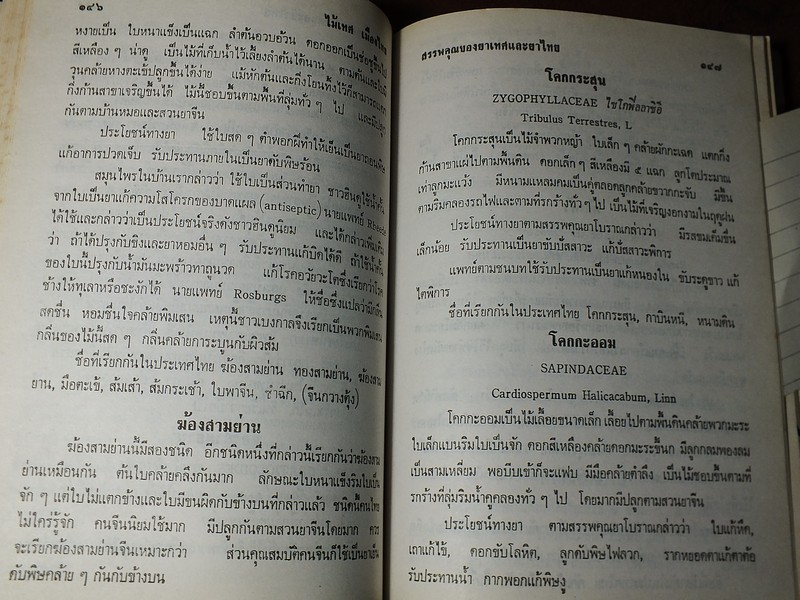 ๑๔๖
ไม้เทศ เมืองไทย
หงายเป็น ใบหนาแข็งเป็นแฉก ลำต้นอวบอ้วน ดอกออกเป็นช่อชูขึ้นไป
สีเหลือง ๆ น่าดู เป็นไม้ที่เก็บน้ำไว้เลี้ยงลำต้นได้นาน ตามต้นและใบมี
วุ้นคล้ายหางตะเข้ปลูกขึ้นได้ง่าย แม้หักต้นและกิ่งโยนทิ้งไว้ก็สามารถแตก
กิ่งก้านสาขาเจริญขึ้นได้ ไม้นี้ชอบขึ้นตามพื้นที่ลุ่มทั่ว ๆ ไป และมีปลูก
กันตามบ้านหมอและสวนยาจีน
ประโยชน์ทางยา ใช้ใบสด ๆ ตำพอกฝีทำให้เย็นเป็นยาถอนพิษ
แก้อาการปวดเจ็บ รับประทานภายในเป็นยาดับพิษร้อน
สมุนไพรในบ้านเรากล่าวว่า ใช้ใบเป็นส่วนทำยา ชาวฮินดูใช้น้ำคั้น
จากใบเป็นยาแก้ความโสโครกของบาดแผล (antiseptic) นายแพทย์
ได้ใช้และกล่าวว่าเป็นประโยชน์จริงดังชาวฮินดูนิยม และได้กล่าวเพิ่มเติม
ว่า ถ้าได้ปรุงกับขิงและยาหอมอื่น ๆ รับประทานแก้บิดได้ดี ถ้าใช้น้ำคั้น
ของใบนี้ปรุงกับน้ำมันมะพร้าวทาถูนวด แก้โรคอวัยวะโตซึ่งเรียกว่าโรค
ช้างให้ทุเลาหรือชะงักได้ นายแพทย์ Rosburgs ให้ชื่อซึ่งแปลว่ามีกลิ่น
สดชื่น หอมชื่นใจคล้ายพิมเสน เหตุนี้ชาวเบงกาลจึงเรียกเป็นพวกพิมเสน
กลิ่นของไม้นี้สด ๆ กลิ่นคล้ายการะบูนกับผิวส้ม
ชื่อที่เรียกกันในประเทศไทย ฆ้องสามย่าน ทองสามย่าน, ฆ้องสาม
ยาน, มือตะเข้, ส้มเส้า, ส้มกระเช้า, ใบพาจีน, ซำฉีก, (จีนกวางตุ้ง)
ฆ้องสามย่าน
ฆ้องสามย่านนี้มีสองชนิด อีกชนิดหนึ่งที่กล่าวนี้เรียกกันว่าฆ้องสาม
ย่านเหมือนกัน ต้นใบคล้ายคลึงกันมาก ลักษณะใบหนาแข็งริมใบเป็น
จัก ๆ แต่ใบไม่แตกข้างและใบมีขนผิดกับข้างบนที่กล่าวแล้ว ชนิดนี้คนไทย
ไม่ใคร่รู้จัก คนจีนนิยมใช้มาก มีปลูกกันตามสวนยาจีนโดยมาก ควร
จะเรียกฆ้องสามย่านจีนเหมาะกว่า ส่วนคุณสมบัติคนจีนก็ใช้เป็นยาเย็น
ดับพิษคล้าย ๆ กันกับข้างบน
สรรพคุณของยาเทศและยาไทย
๑๔๗
โคกกระสุน
ZYGOPHYLLACEAE ไซโกฟิลลาซีอี
Tribulus Terrestres, L
โคกกระสุนเป็นไม้จำพวกหญ้า ใบเล็ก ๆ คล้ายผักกะเฉด แตกกิ่ง
ก้านสาขาแผ่ไปตามพื้นดิน ดอกเล็ก ๆ สีเหลืองมี ๕ แฉก ลูกโตประมาณ
เท่าลูกมะแว้ง มีหนามแหลมคมเป็นคู่ตลอดลูกคล้ายขวากกะจับ มีขึ้น
ตามริมคลองรถไฟและตามที่รกร้างทั่ว ๆ ไป เป็นไม้ที่เจริญงอกงามในฤดูฝน
ประโยชน์ทางยาตามสรรพคุณยาโบราณกล่าวว่า มีรสขมเค็มขื่น
เล็กน้อย รับประทานเป็นยาขับปัสสาวะ แก้ปัสสาวะพิการ
แพทย์ตามชนบทใช้รับประทานเป็นยาแก้หนองใน ขับระดูขาว แก้
ไตพิการ
ชื่อที่เรียกกันในประเทศไทย โคกกระสุน, กาบินหนี, หนามดิน
โคกกะออม
SAPINDACEAE
Cardiospermum Halicacabum, Linn
โคกกะออมเป็นไม้เลื้อยขนาดเล็ก เลื้อยไปตามพื้นดินคล้ายพวกมะระ
ใบเล็กแบนริมใบเป็นจัก ดอกสีเหลืองคล้ายดอกมะระขี้นก มีลูกกลมพองลม
เป็นสามเหลี่ยม พอบีบเข้าก็จะแฟบ มีมือคล้ายตำลึง เป็นไม้ชอบขึ้นตามที่
รกร้างที่ลุ่มริมน้ำคูคลองทั่ว ๆ ไป โดยมากมีปลูกตามสวนยาจีน
ประโยชน์ทางยา ตามสรรพคุณยาโบราณกล่าวว่า ใบแก้หืด,
เถาแก้ไข้, ดอกขับโลหิต, ลูกดับพิษไฟลวก, รากหยอดตาแก้ตาต้อ
รับประทานน้ำ กากพอกแก้พิษงู